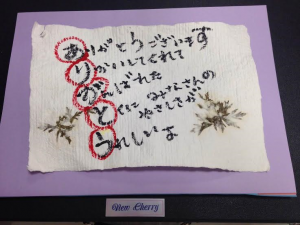 ありがとうございます
りかいしてくれて
がんばれた
とくに みなさんの
やさしさが
うれしいよ
New Cherry